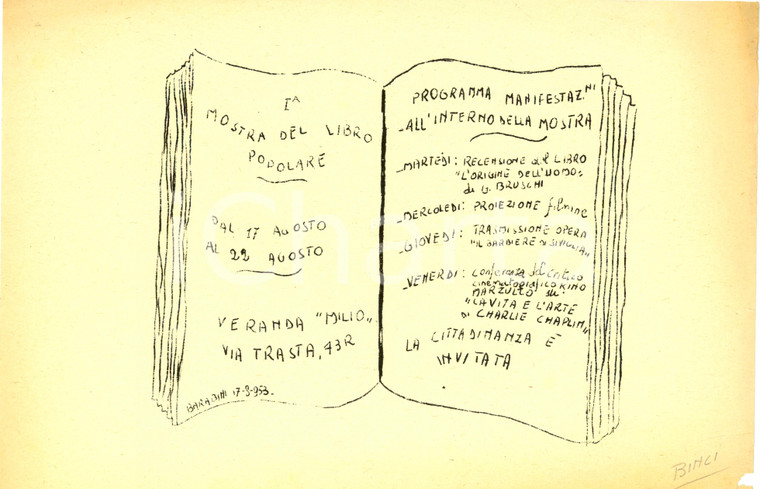 Iª
MOSTRA DEL LIBRO
POPOLARE
DAL 17 AGOSTO
AL 22 AGOSTO
VERANDA "MILIO"
VIA TRASTA, 43R
BARABINI 17-8-953-
PROGRAMMA MANIFESTAZ.NI
-ALL'INTERNO DELLA MOSTRA
-MARTEDI: RECENSIONE SUL LIBRO
"L'ORIGINE DELL'UOMO"
di G. BRUSCHI
-MERCOLEDI: PROIEZIONE filmine
-GIOVEDI: TRASMISSIONE OPERA
"IL BARBIERE DI SIVIGLIA"
-VENERDI: conferenza del critico
cinematografico KINO
MARZULLO su:
"LA VITA E L'ARTE
DI CHARLIE CHAPLIN"
LA CITTADINANZA È
INVITATA
BINCI